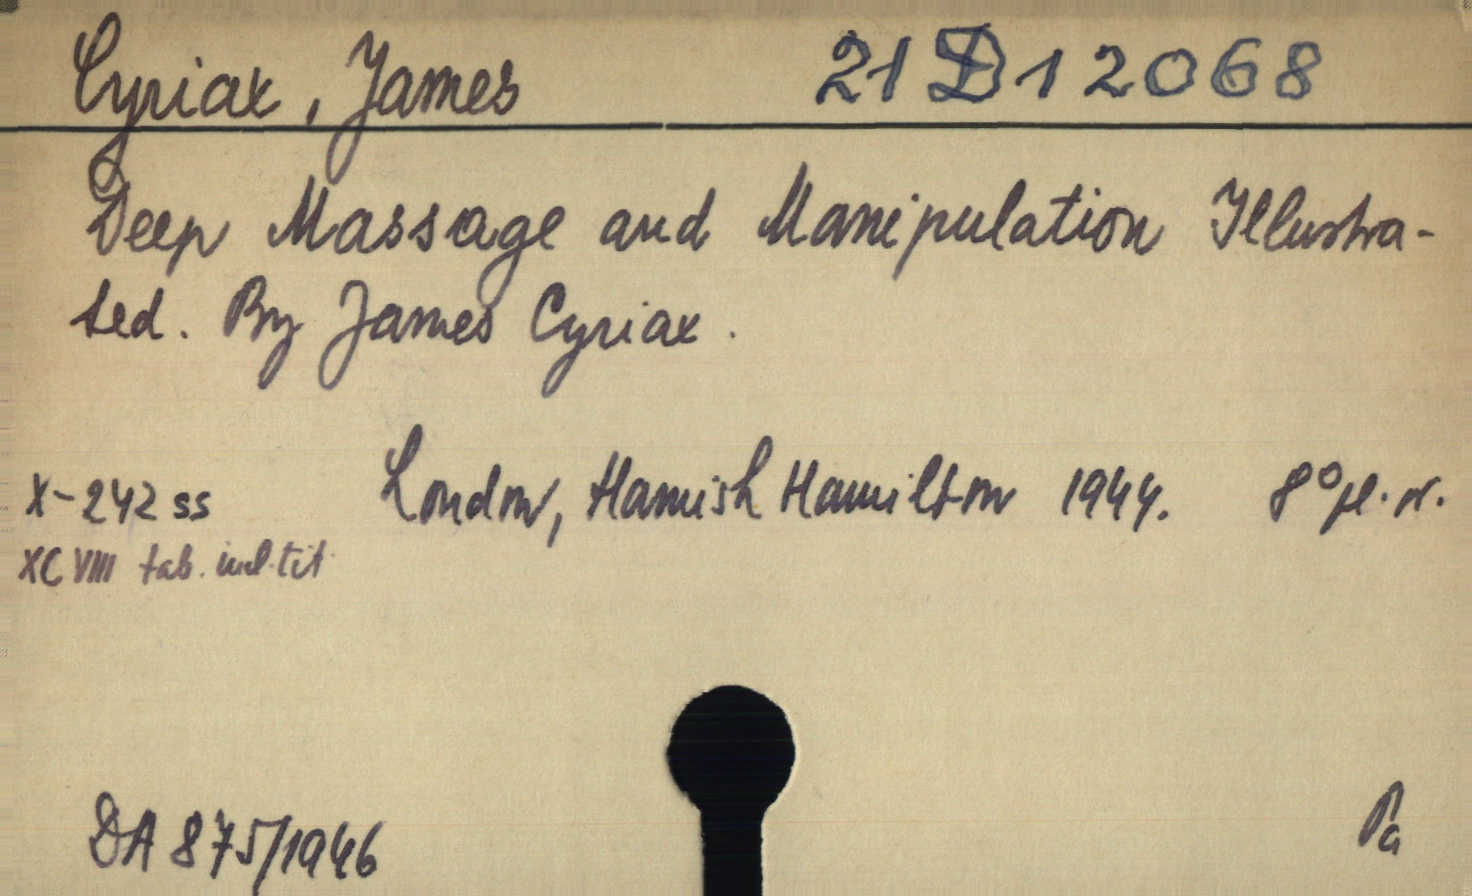 Cyriax, James 21 D 12068
Deep Massage and Manipulation Illustra-
ted. By James Cyriax.
X-242 ss London, Hamish Hamilton 1944. 8° pl. n.
XCVIII tab. incl. tit
DA 875/1946 Pa